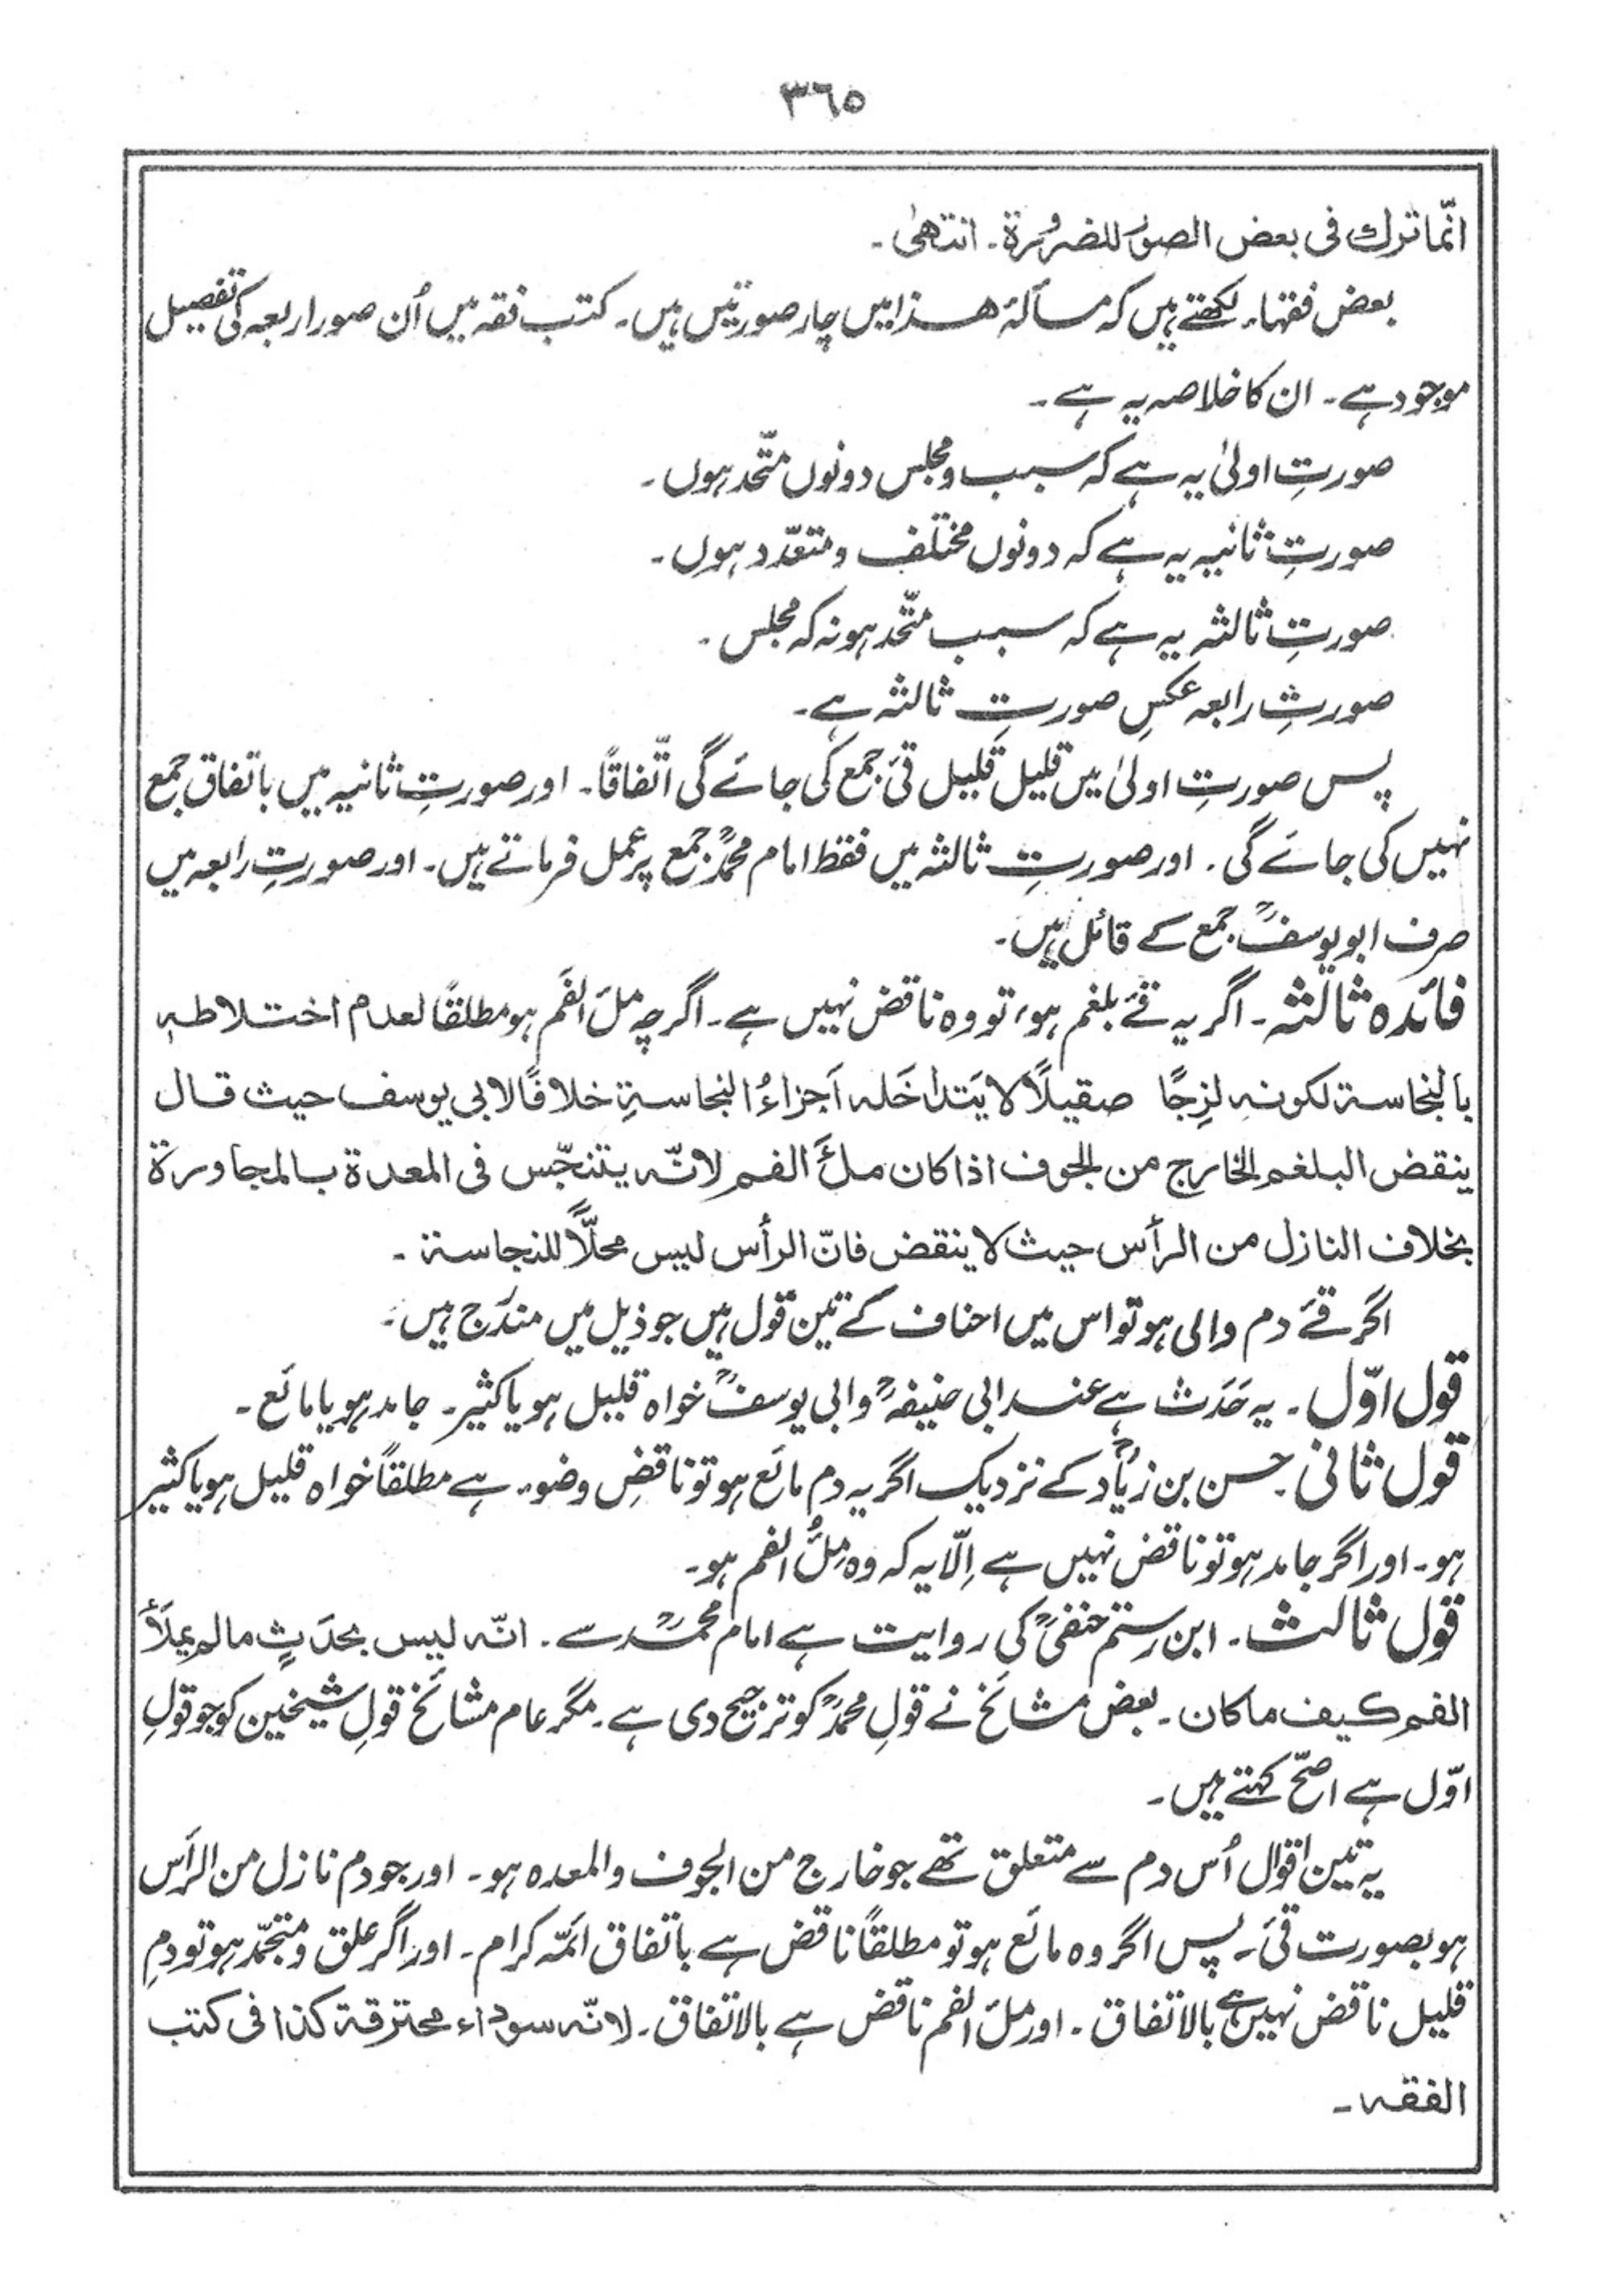 ٣٦٥
انّما ترك فی بعض الصور للضرورة۔ انتھیٰ۔
بعض فقہاء لکھتے ہیں کہ مسألۂ ھذا میں چار صورتیں ہیں۔ کتب فقہ میں اُن صور اربعہ کی تفصیل
موجود ہے۔ ان کا خلاصہ یہ ہے۔
صورتِ اولیٰ یہ ہے کہ سبب و مجلس دونوں متّحد ہوں۔
صورتِ ثانیہ یہ ہے کہ دونوں مختلف و متعدّد ہوں۔
صورتِ ثالثہ یہ ہے کہ سبب متّحد ہو نہ کہ مجلس۔
صورتِ رابعہ عکسِ صورتِ ثالثہ ہے۔
پس صورتِ اولیٰ میں قلیل قلیل قئ جمع کی جائے گی اتّفاقًا۔ اور صورتِ ثانیہ میں باتفاق جمع
نہیں کی جائے گی۔ اور صورتِ ثالثہ میں فقط امام محمدؒ جمع پر عمل فرماتے ہیں۔ اور صورتِ رابعہ میں
صرف ابو یوسفؒ جمع کے قائل ہیں۔
فائدہ ثالثہ۔ اگر یہ قے بلغم ہو، تو وہ ناقض نہیں ہے۔ اگرچہ ملئَ الفَم ہو مطلقًا لعدم اختلاطہٖ
بالنجاسة لکونہٖ لزِجًا صقیلًا لا یَتداخَلہ اَجزاءُ النجاسةِ خلافًا لابی یوسف حیث قال
ینقض البلغم الخارج من الجوف اذا کان ملئَ الفم لانّہ یتنجّس فی المعدة بالمجاورة
بخلاف النازل من الرأس حیث لا ینقض فانّ الرأس لیس محلًّا للنجاسة۔
اگر قئے دم والی ہو تو اس میں احناف کے تین قول ہیں جو ذیل میں مندَرج ہیں۔
قول اوّل۔ یہ حَدَث ہے عند ابی حنیفہؒ وابی یوسفؒ خواہ قلیل ہو یا کثیر۔ جامد ہو یا مائع۔
قول ثانی۔ حسن بن زیادؒ کے نزدیک اگر یہ دم مائع ہو تو ناقضِ وضوء ہے مطلقاً خواہ قلیل ہو یا کثیر
ہو۔ اور اگر جامد ہو تو ناقض نہیں ہے اِلّا یہ کہ وہ مِلئُ الفم ہو۔
قول ثالث۔ ابن رستم حنفیؒ کی روایت ہے امام محمدؒ سے۔ انّہ لیس بحدَثٍ مالم یملَأ
الفم کیف ما کان۔ بعض مشائخ نے قولِ محمدؒ کو ترجیح دی ہے۔ مگر عام مشائخ قولِ شیخین کو جو قولِ
اوّل ہے اصحّ کہتے ہیں۔
یہ تین اقوال اُس دم سے متعلق تھے جو خارج من الجوف والمعدہ ہو۔ اور جو دم نازل من الرأس
ہو بصورت قئ۔ پس اگر وہ مائع ہو تو مطلقًا ناقض ہے باتفاق ائمّہ کرام۔ اور اگر علق و متجمّد ہو تو دمِ
قلیل ناقض نہیں ہے بالاتفاق۔ اور ملئَ الفم ناقض ہے بالاتفاق۔ لانّہ سوداء محترقة کذا فی کتب
الفقہ۔